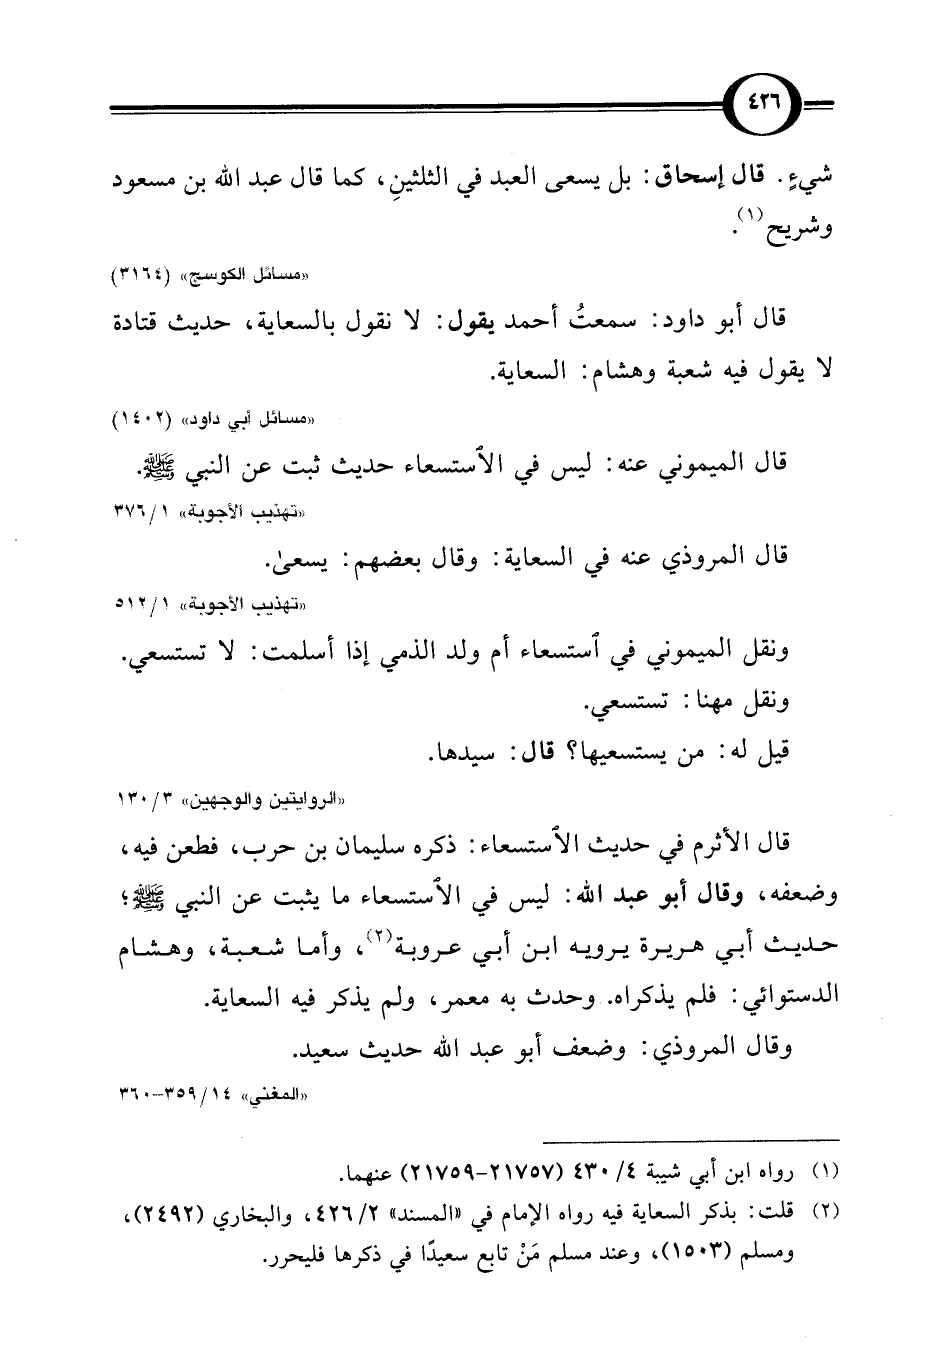 ٤٢٦
شيءٍ. قال إسحاق: بل يسعى العبد في الثلثينِ، كما قال عبد الله بن مسعود
وشريح(١).
«مسائل الكوسج» (٣١٦٤)
قال أبو داود: سمعتُ أحمد يقول: لا نقول بالسعاية، حديث قتادة
لا يقول فيه شعبة وهشام: السعاية.
«مسائل أبي داود» (١٤٠٢)
قال الميموني عنه: ليس في الاٌستسعاء حديث ثبت عن النبي ﷺ.
«تهذيب الأجوبة» ١/ ٣٧٦
قال المروذي عنه في السعاية: وقال بعضهم: يسعىٰ.
«تهذيب الأجوبة» ١/ ٥١٢
ونقل الميموني في ٱستسعاء أم ولد الذمي إذا أسلمت: لا تستسعي.
ونقل مهنا: تستسعي.
قيل له: من يستسعيها؟ قال: سيدها.
«الروايتين والوجهين» ٣/ ١٣٠
قال الأثرم في حديث الاٌستسعاء: ذكره سليمان بن حرب، فطعن فيه،
وضعفه، وقال أبو عبد الله: ليس في الاٌستسعاء ما يثبت عن النبي ﷺ؛
حديث أبي هريرة يرويه ابن أبي عروبة(٢)، وأما شعبة، وهشام
الدستوائي: فلم يذكراه. وحدث به معمر، ولم يذكر فيه السعاية.
وقال المروذي: وضعف أبو عبد الله حديث سعيد.
«المغني» ١٤/ ٣٥٩-٣٦٠
(١) رواه ابن أبي شيبة ٤/ ٤٣٠ (٢١٧٥٧-٢١٧٥٩) عنهما.
(٢) قلت: بذكر السعاية فيه رواه الإمام في «المسند» ٢/ ٤٢٦، والبخاري (٢٤٩٢)،
ومسلم (١٥٠٣)، وعند مسلم مَنْ تابع سعيدًا في ذكرها فليحرر.